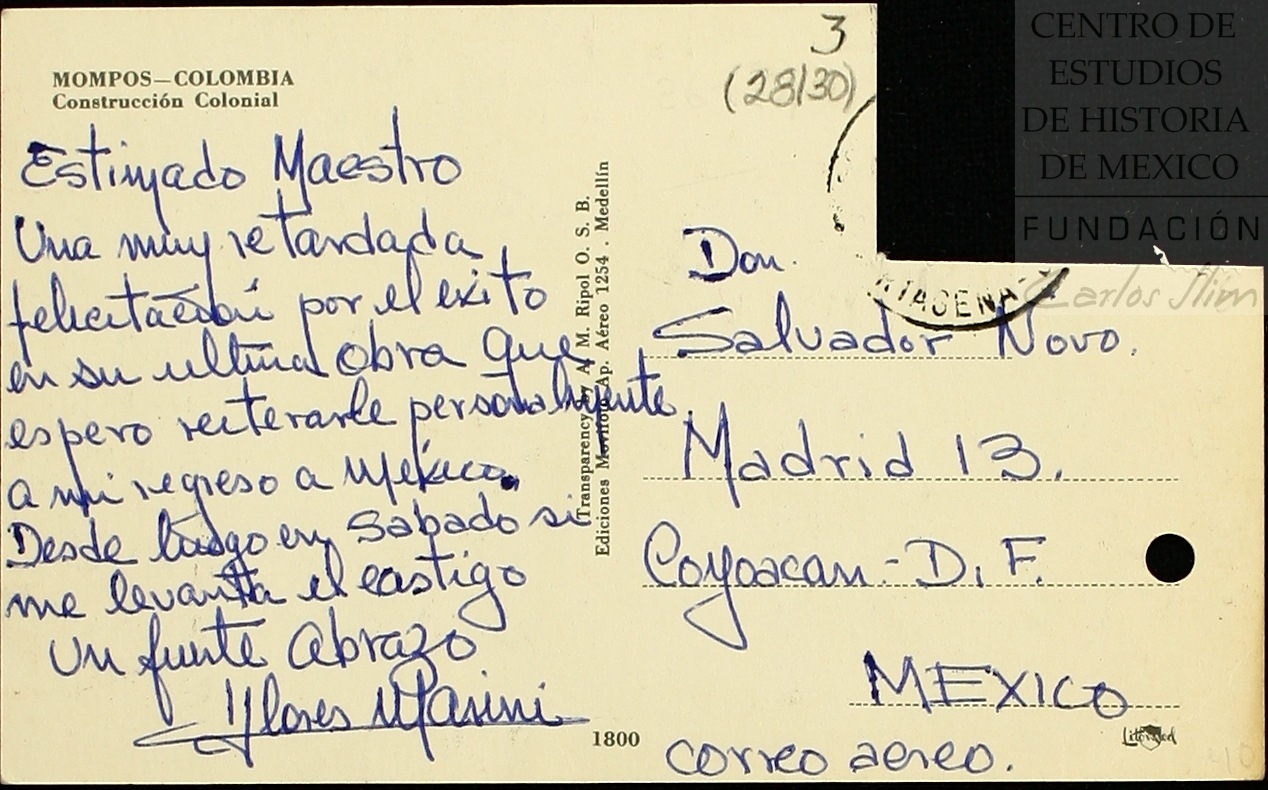 MOMPOS—COLOMBIA
Construcción Colonial
Estimado Maestro
Una muy retardada
felicitación por el exito
en su ultima obra que
espero reiterarle personalmente
a mi regreso a México.
Desde luego en Sabado si
me levanta el castigo
un fuerte abrazo
Flores Marini
Transparency by A. M. Ripol O. S. B.
Ediciones Movifoto Ap. Aéreo 1254 . Medellín
1800
3
(28/30)
RTAGENA
Don.
Salvador Novo.
Madrid 13.
Coyoacan - D. F.
MEXICO
correo aereo.
CENTRO DE
ESTUDIOS
DE HISTORIA
DE MEXICO
FUNDACIÓN
Carlos Slim